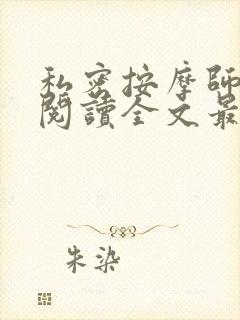 私密按摩師
閱讀全文最
朱染